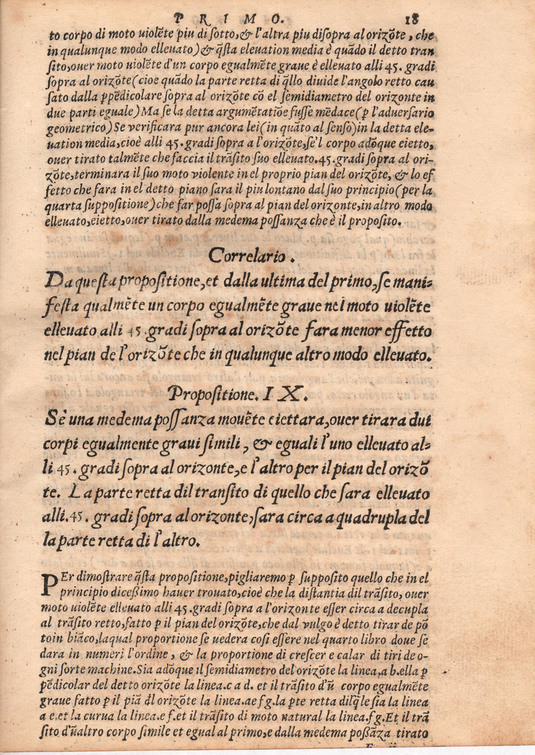 PRIMO. 18
to corpo di moto uiolẽte piu di sotto, & l'altra piu disopra al orizõte, che
in qualunque modo elleuato) & q̃sta eleuation media è quãdo il detto tran
sito, ouer moto uiolẽte d'un corpo egualmẽte graue è elleuato alli 45. gradi
sopra al orizõte (cioe quãdo la parte retta di q̃llo diuide l'angolo retto cau
sato dalla ppẽdicolare sopra al orizõte cõ el semidiametro del orizonte in
due parti eguale) Ma se la detta argumẽtatiõe fusse mẽdace (p l'aduersario
geometrico) Se verificara pur ancora lei (in quãto al senso) in la detta ele-
uation media, cioè alli 45. gradi sopra a l'orizõte, se'l corpo adõque eietto,
ouer tirato talmẽte che faccia il trãsito suo elleuato. 45. gradi sopra al ori-
zõte, terminara il suo moto violente in el proprio pian del orizõte, & lo ef
fetto che fara in el detto piano sara il piu lontano dal suo principio (per la
quarta suppositione) che far possa sopra al pian del orizonte, in altro modo
elleuato, eietto, ouer tirato dalla medema possanza che è il proposito.
Correlario.
Da questa propositione, et dalla ultima del primo, se mani-
festa qualmẽte un corpo egualmẽte graue nei moto uiolẽte
elleuato alli 45. gradi sopra al orizõte fara menor effetto
nel pian de l'orizõte che in qualunque altro modo elleuato.
Propositione. IX.
Sè una medema possanza mouẽte eiettara, ouer tirara dui
corpi egualmente graui simili, & eguali l'uno elleuato al-
li 45. gradi sopra al orizonte, e l'altro per il pian del orizõ
te. La parte retta dil transito di quello che sara elleuato
alli. 45. gradi sopra al orizonte, sara circa a quadrupla del
la parte retta di l'altro.
PEr dimostrare q̃sta propositione, pigliaremo p supposito quello che in el
principio dicessimo hauer trouato, cioè che la distantia dil trãsito, ouer
moto uiolẽte elleuato alli 45. gradi sopra a l'orizonte esser circa a decupla
al trãsito retto, fatto p il pian del orizõte, che dal vulgo è detto tirar de põ
to in biãco, laqual proportione se uedera cosi essere nel quarto libro doue se
dara in numeri l'ordine, & la proportione di crescer e calar di tiri de o-
gni sorte machine. Sia adõque il semidiametro del orizõte la linea, a b. ella p
pẽdicolar del detto orizõte la linea. c a d. et il trãsito d'ũ corpo egualmẽte
graue fatto p il piã dl orizõte la linea. a e f g. la pte retta dilq̃le sia la linea
a e. et la curua la linea. e f. et il trãsito di moto natural la linea. f g. Et il trã
sito d'uñaltro corpo simile et egual al primo, e dalla medema possãza tirato